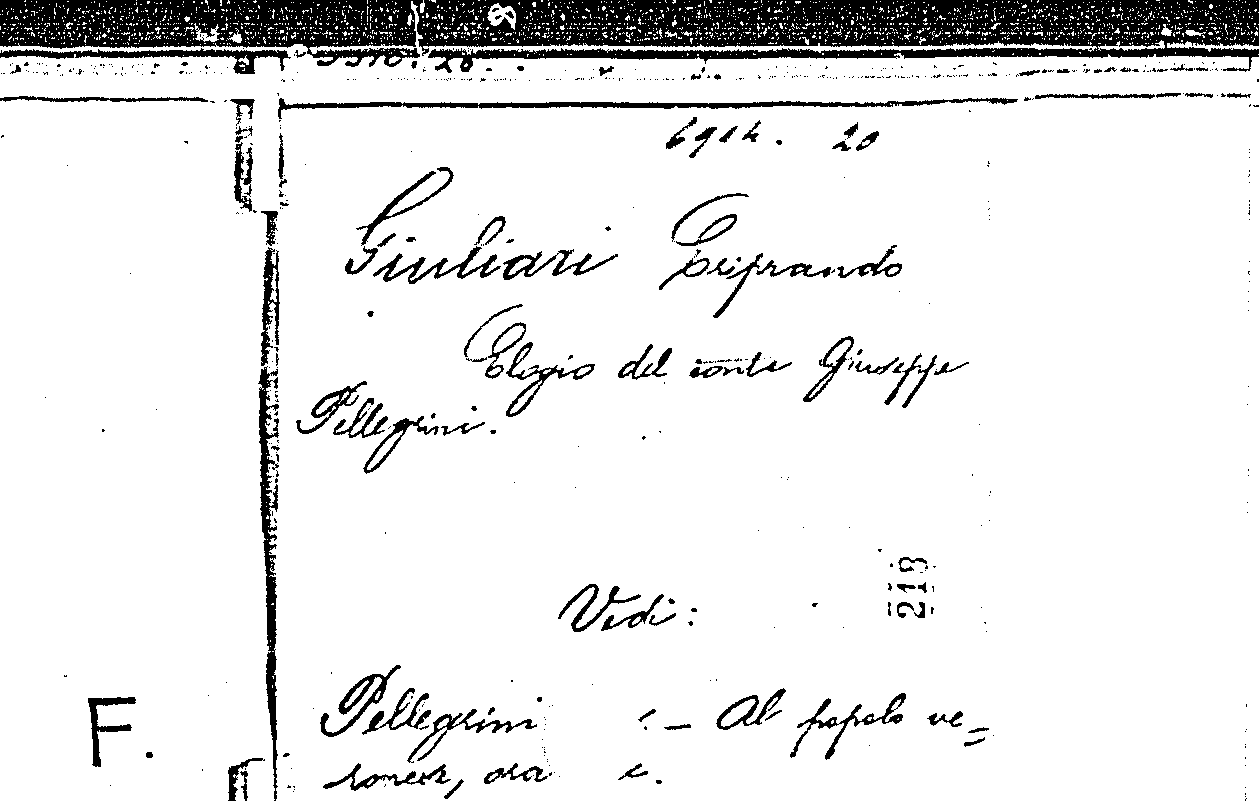 6914. 20
Giuliari Eriprando
Elogio del conte Giuseppe
Pellegrini.
218
Vedi:
Pellegrini c. – Al popolo ve=
F.
ronese, ora c.